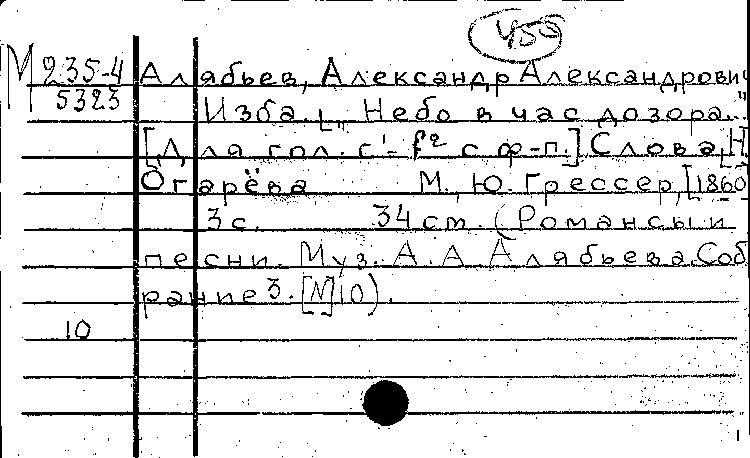 455
М 235-4 Алябьев, Александр Александрович
5323 Изба. [„Небо в час дозора."
[Для гол. c¹–f² с ф-п.] Слова [Н]
Огарёва М., Ю. Грессер, [1860]
3 с. 34 см. (Романсы и
песни. Муз. А. А Алябьева. Соб
рание 3. [N] 10).
10